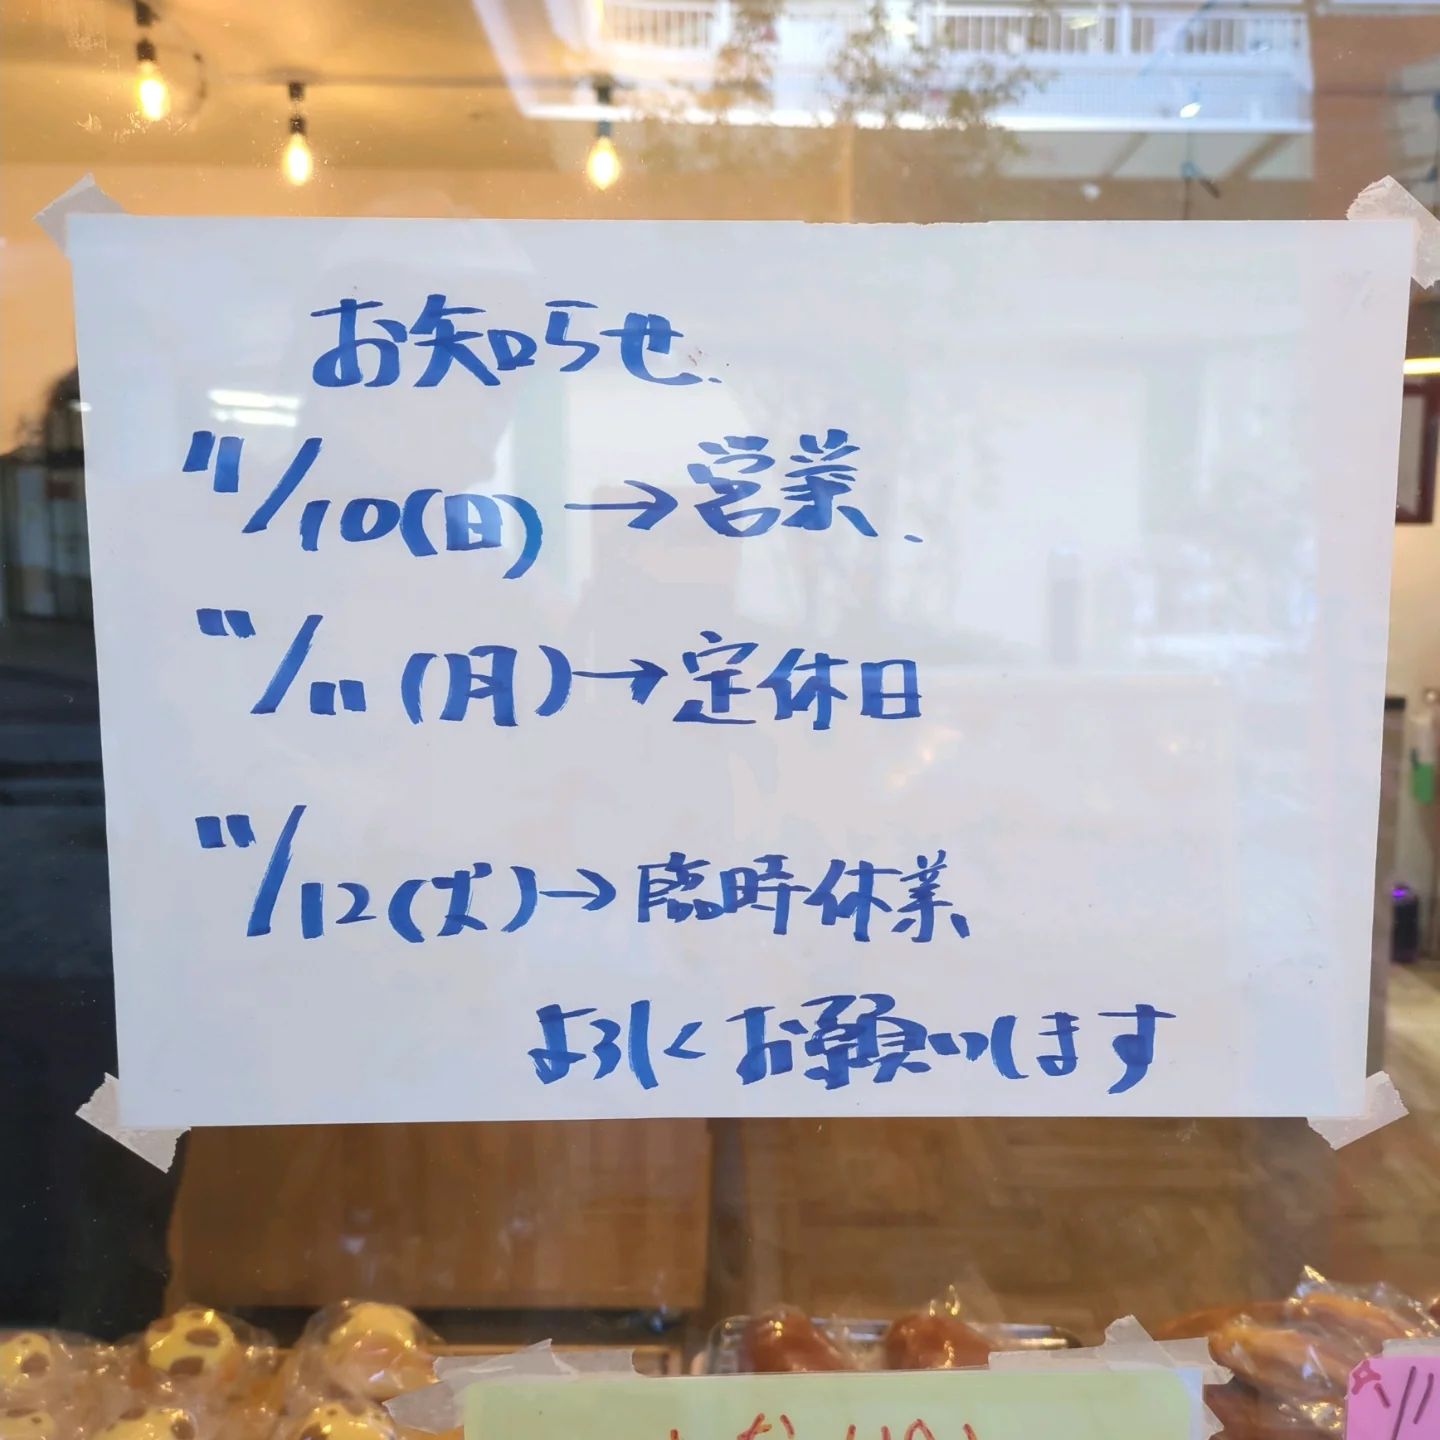 お知らせ.
11/10(日)→営業.
11/11(月)→定休日
11/12(火)→臨時休業
よろしくお願いします